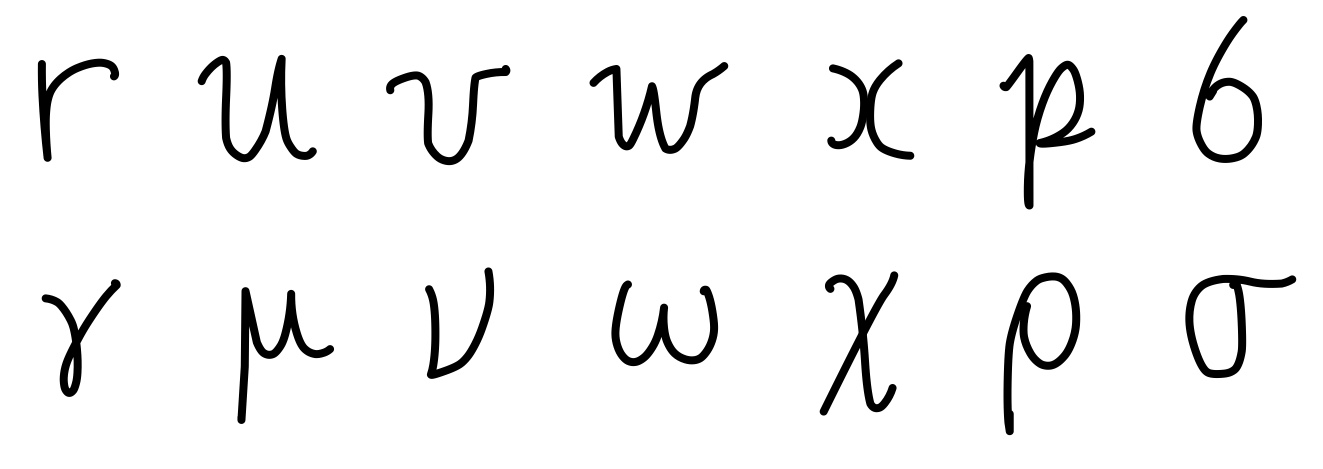 r u v w x p 6
γ μ ν ω χ ρ σ